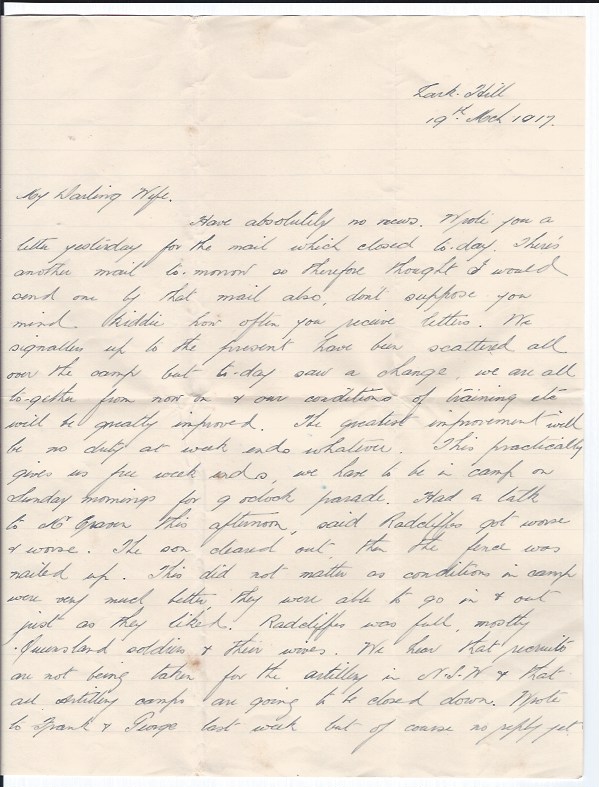 Lark-Hill
19th Mch 1917.
My Darling Wife.
Have absolutely no news. Wrote you a
letter yesterday for the mail which closed to-day. There's
another mail to-morrow so therefore thought I would
send one by that mail also, don't suppose you
mind Kiddie how often you receive letters. We
signallers up to the present have been scattered all
over the camp but to-day saw a change, we are all
to-gether from now on & our conditions of training etc
will be greatly improved. The greatest improvement will
be no duty at week ends whatever. This practically
gives us free week ends, we have to be in camp on
Sunday mornings for 9 oclock parade. Had a talk
to Mr this afternoon, said Radcliffes got worse
& worse. The son cleared out, then the fence was
nailed up. This did not matter as conditions in camp
were very much better, they were able to go in & out
just as they liked. Radcliffes was full, mostly
Queensland soldiers & their wives. We hear that recruits
are not being taken for the artillery in N.S.W & that
all artillery camps are going to be closed down. Wrote
to Frank & George last week but of course no reply yet